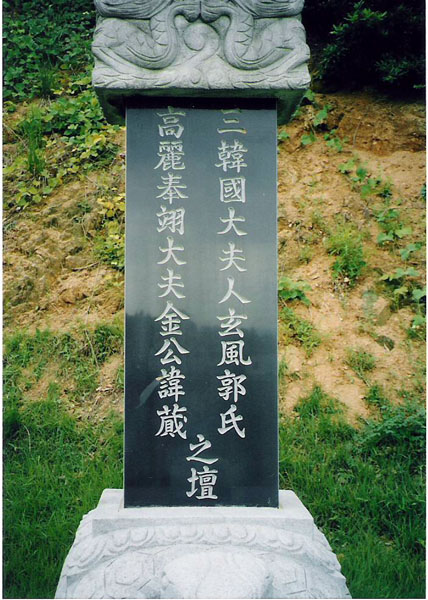 三韓國大夫人玄風郭氏
高麗奉翊大夫金公諱蕆
之壇